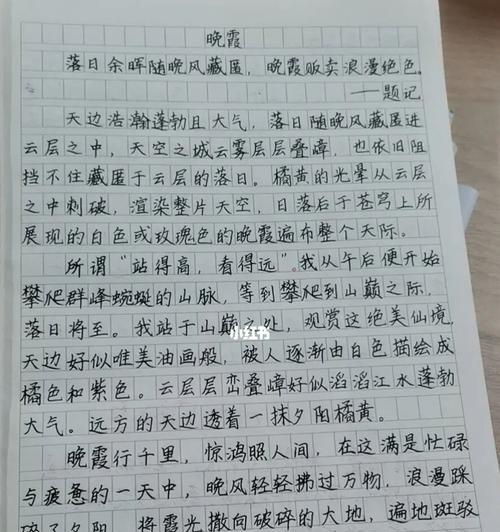 晚霞
落日余晖随晚风藏匿,晚霞贩卖浪漫绝色。
——题记
天边浩瀚蓬勃且大气,落日随晚风藏匿进
云层之中,天空之城云雾层层叠嶂,也依旧阻
挡不住藏匿于云层的落日。橘黄的光晕从云层
之中刺破,渲染整片天空,日落后于苍穹上所
展现的白色或玫瑰色的晚霞遍布整个天际。
所谓“站得高,看得远”。我从午后便开始
攀爬群峰蜿蜒的山脉,等到攀爬到山巅之际,
落日将至。我站于山巅之处,观赏这绝美仙境,
天边好似唯美油画般,被人逐渐由白色描绘成
橘色和紫色。云层层峦叠嶂好似滔滔江水蓬勃
大气。远方的天边透着一抹夕阳橘黄。
晚霞行千里,惊鸿照人间,在这满是忙碌
与疲惫的一天中,晚风轻轻拂过万物,浪漫踩
碎了夕阳,将霞光撒向破碎的大地,遍地斑驳
小红书